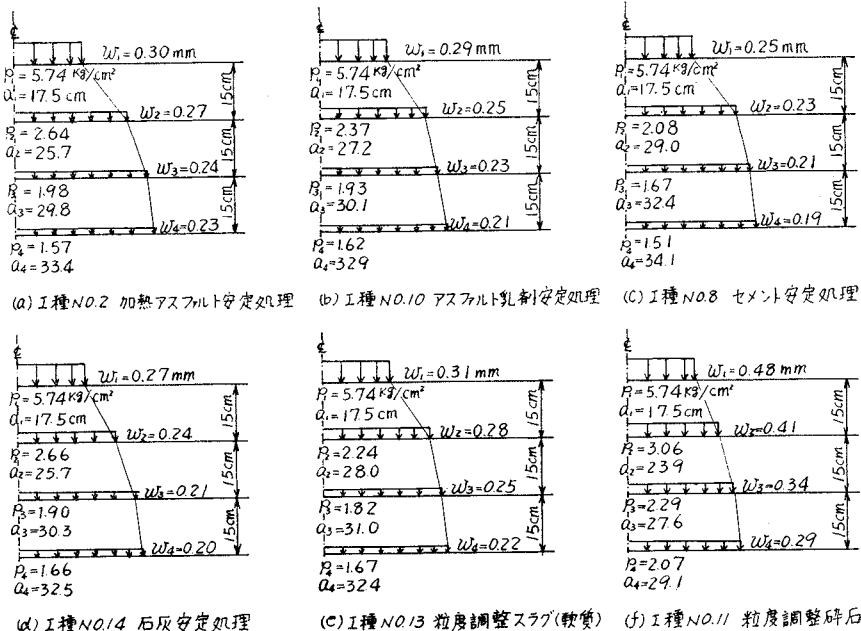 ℄
W₁=0.30 mm
P₁=5.74 Kg/cm²
a₁=17.5 cm
15cm
W₂=0.27
P₂=2.64
a₂=25.7
15cm
W₃=0.24
P₃=1.98
a₃=29.8
15cm
W₄=0.23
P₄=1.57
a₄=33.4
(a) I種NO.2 加熱アスファルト安定処理
℄
W₁=0.29 mm
P₁=5.74 Kg/cm²
a₁=17.5 cm
15cm
W₂=0.25
P₂=2.37
a₂=27.2
15cm
W₃=0.23
P₃=1.93
a₃=30.1
15cm
W₄=0.21
P₄=1.62
a₄=32.9
(b) I種NO.10 アスファルト乳剤安定処理
℄
W₁=0.25 mm
P₁=5.74 Kg/cm²
a₁=17.5 cm
15cm
W₂=0.23
P₂=2.08
a₂=29.0
15cm
W₃=0.21
P₃=1.67
a₃=32.4
15cm
W₄=0.19
P₄=1.51
a₄=34.1
(c) I種NO.8 セメント安定処理
℄
W₁=0.27 mm
P₁=5.74 Kg/cm²
a₁=17.5 cm
15cm
W₂=0.24
P₂=2.66
a₂=25.7
15cm
W₃=0.21
P₃=1.90
a₃=30.3
15cm
W₄=0.20
P₄=1.66
a₄=32.5
(d) I種NO.14 石灰安定処理
℄
W₁=0.31 mm
P₁=5.74 Kg/cm²
a₁=17.5 cm
15cm
W₂=0.28
P₂=2.24
a₂=28.0
15cm
W₃=0.25
P₃=1.82
a₃=31.0
15cm
W₄=0.22
P₄=1.67
a₄=32.4
(e) I種NO.13 粒度調整スラグ(軟質)
℄
W₁=0.48 mm
P₁=5.74 Kg/cm²
a₁=17.5 cm
15cm
W₂=0.41
P₂=3.06
a₂=23.9
15cm
W₃=0.34
P₃=2.29
a₃=27.6
15cm
W₄=0.29
P₄=2.07
a₄=29.1
(f) I種NO.11 粒度調整砕石